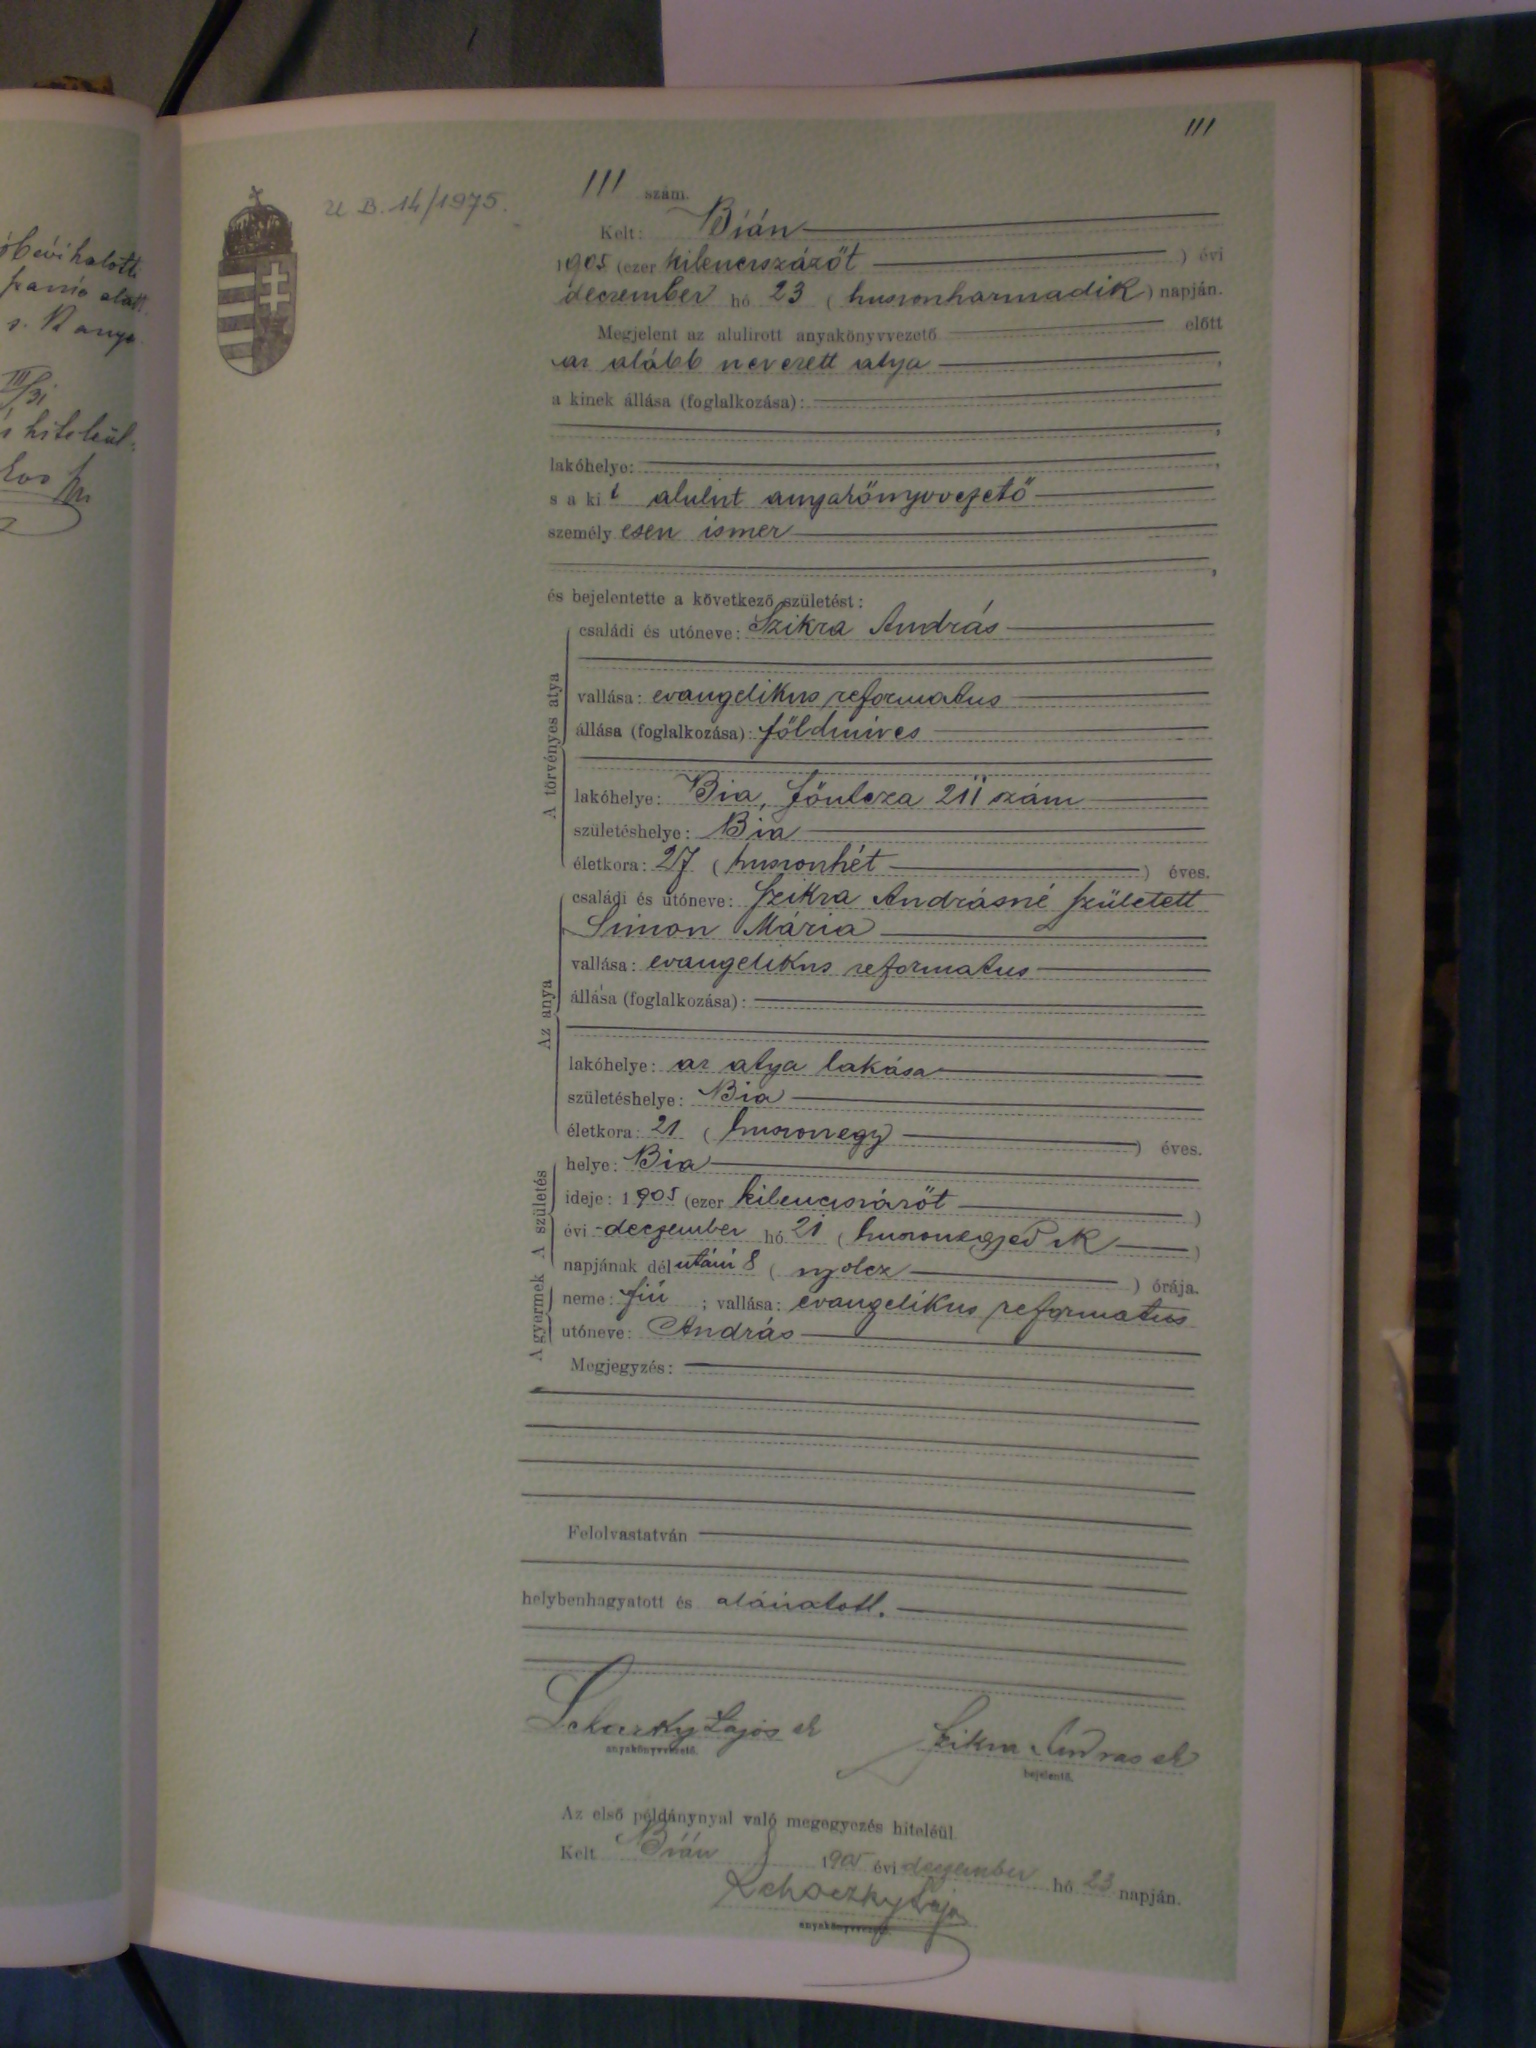 111
111 szám.
U B. 14/1975.
Kelt: Bián
1905 (ezer kilenczszázöt ) évi
deczember hó 23 ( huszonharmadik ) napján.
Megjelent az alulirott anyakönyvvezető előtt
az alább nevezett atya ,
a kinek állása (foglalkozása):
,
lakóhelye: ,
s a kit alulirt anyakönyvvezető
személyesen ismer
,
és bejelentette a következő születést:
A törvényes atya
családi és utóneve: Szikra András
vallása: evangelikus reformatus
állása (foglalkozása): földmives
lakóhelye: Bia, főulcza 211 szám
születéshelye: Bia
életkora: 27 ( huszonhét ) éves.
Az anya
családi és utóneve: Szikra Andrásné született
Simon Mária
vallása: evangelikus reformatus
állása (foglalkozása):
lakóhelye: az atya lakása
születéshelye: Bia
életkora: 21 ( huszonegy ) éves.
A születés
helye: Bia
ideje: 1905 (ezer kilenczszázöt )
évi deczember hó 21 ( huszonegyedik )
napjának délutáni 8 ( nyolcz ) órája.
A gyermek
neme: fiú ; vallása: evangelikus reformatus
utóneve: András
Megjegyzés:
Felolvastatván
helybenhagyatott és aláiratott.
Lajos sk Szikra András sk
anyakönyvvezető. bejelentő.
Az első példánynyal való megegyezés hiteléül.
Kelt Bián 1905 évi deczember hó 23 napján.
Lajos
anyakönyvvezető.